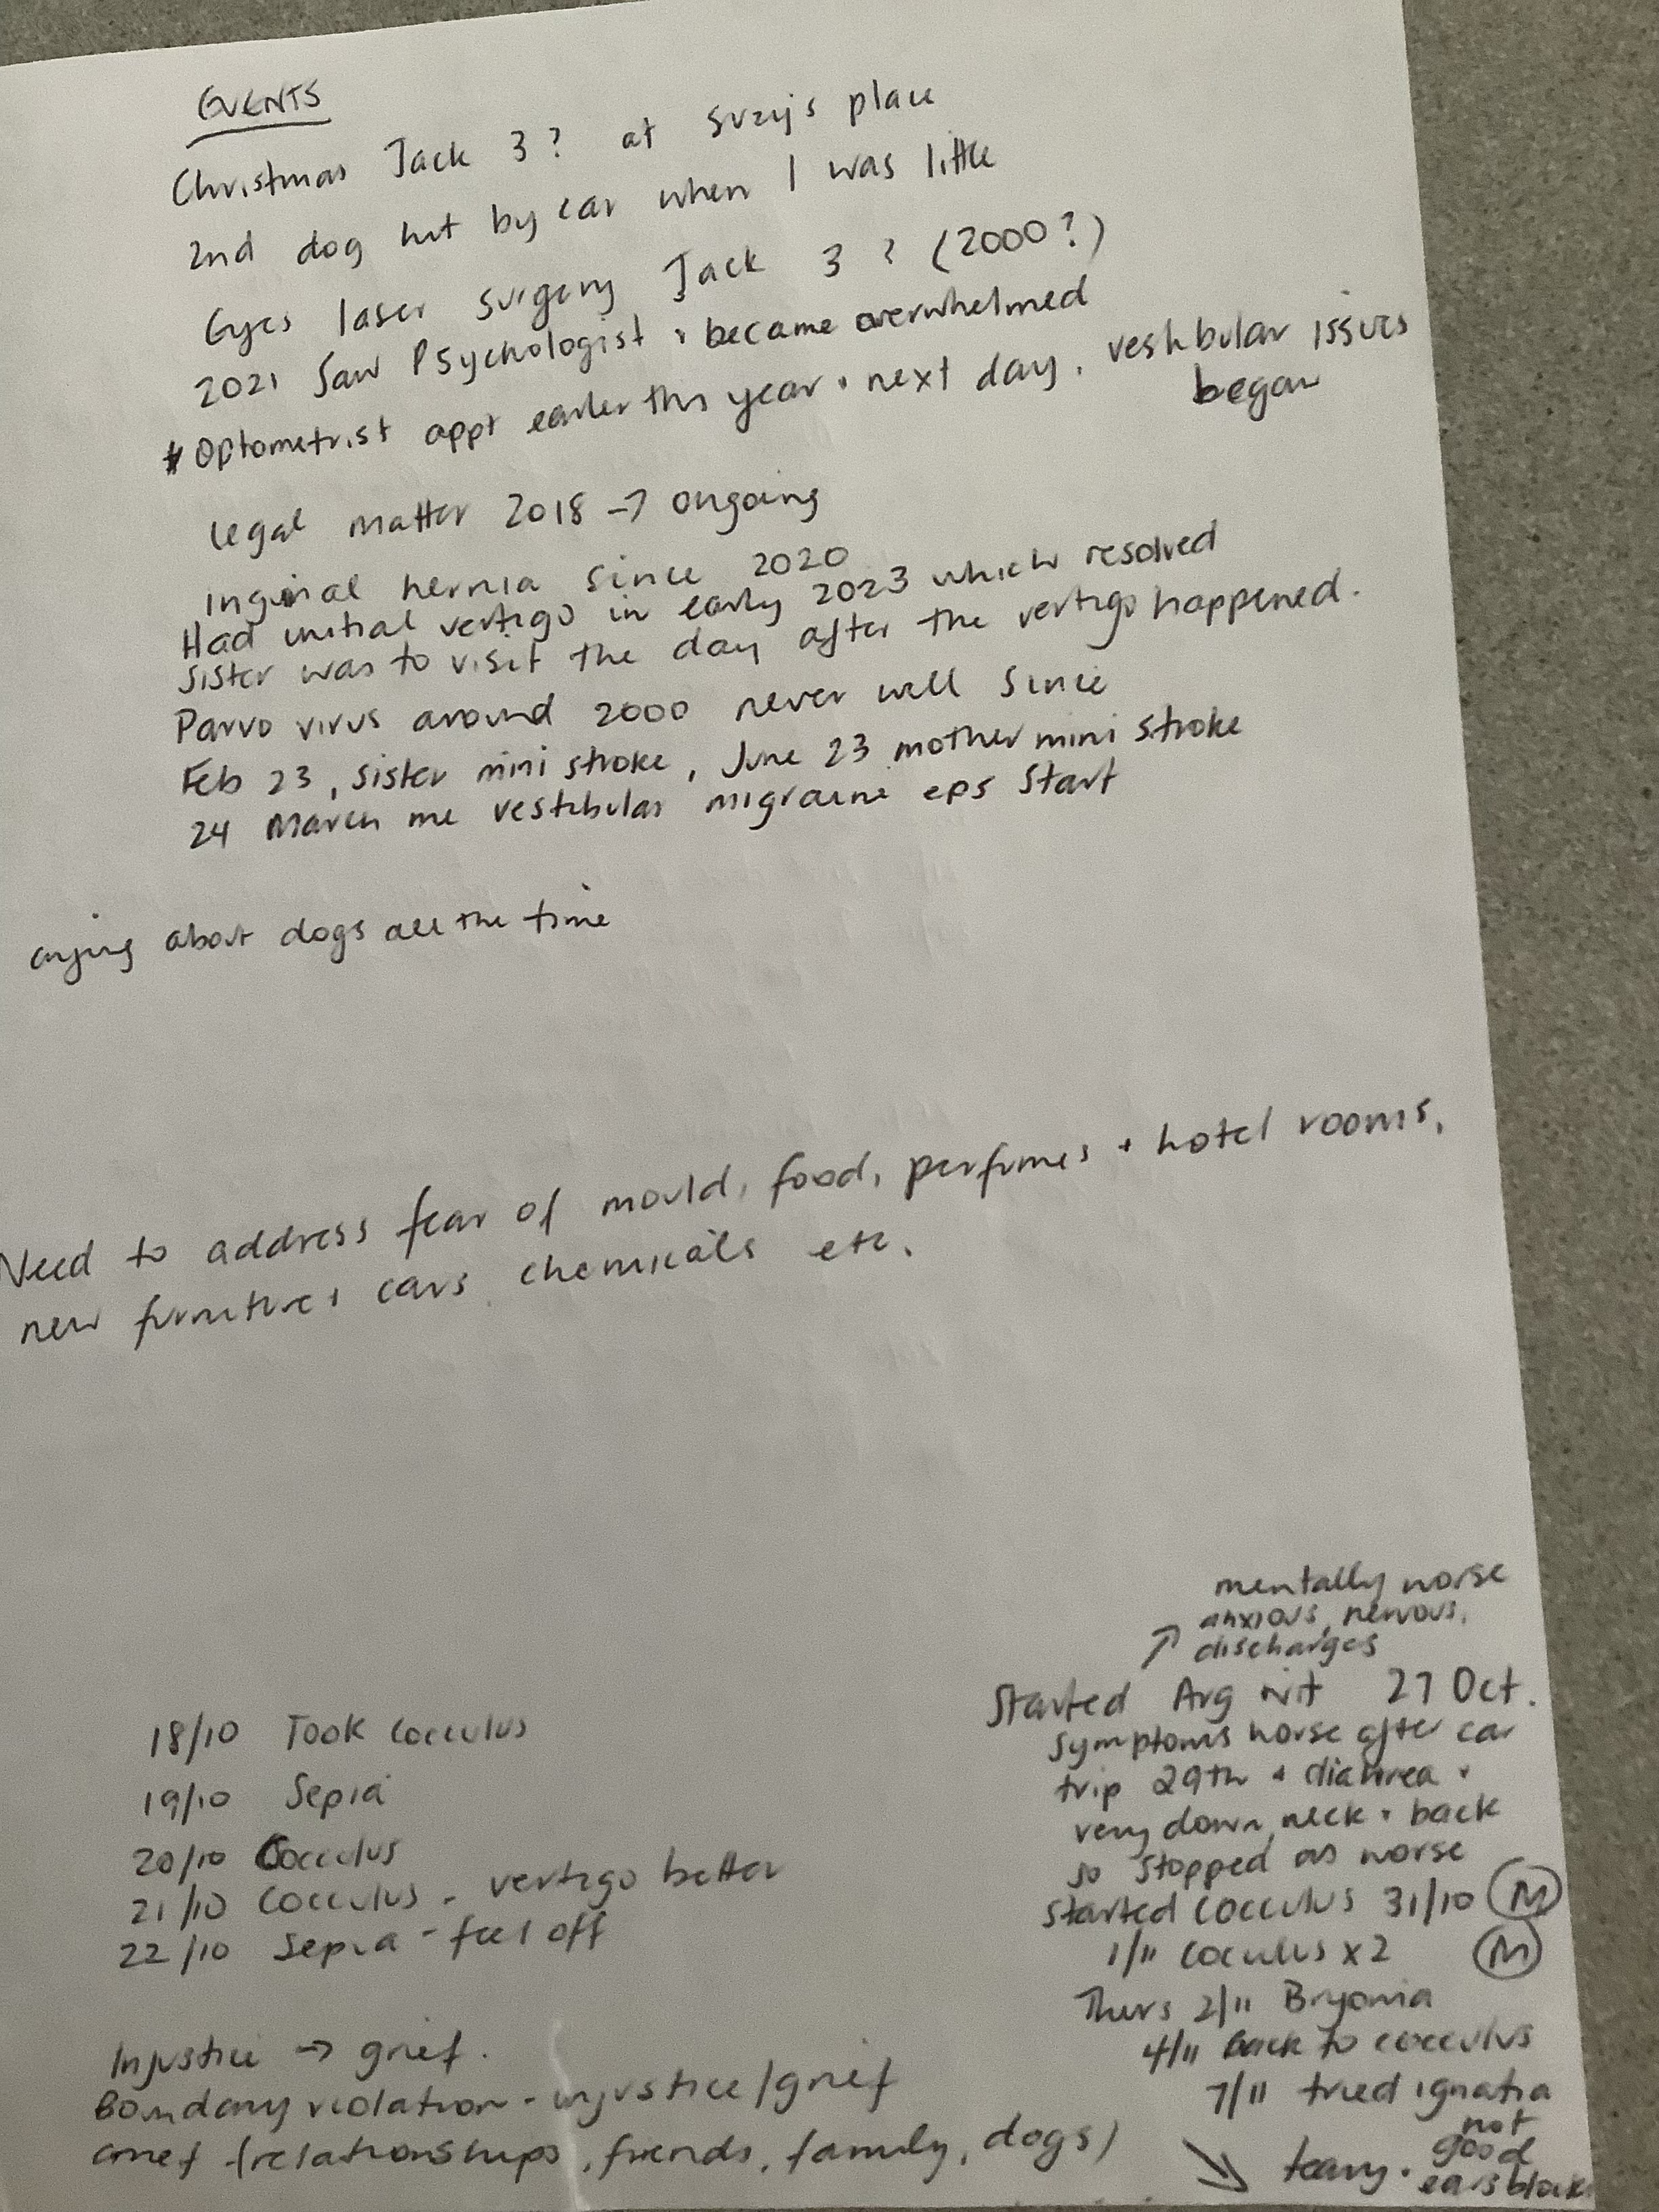 EVENTS
Christmas Jack 3? at Suzy's place
2nd dog hit by car when I was little
Eyes laser surgery Jack 3? (2000?)
2021 Saw Psychologist + became overwhelmed
* Optometrist appt earlier this year + next day, vestibular issues
began
legal matter 2018 → ongoing
Inginal hernia since 2020
Had initial vertigo in early 2023 which resolved
Sister was to visit the day after the vertigo happened.
Parvo virus around 2000 never well since
Feb 23, sister mini stroke, June 23 mother mini stroke
24 March me vestibular migraine eps start
crying about dogs all the time
Need to address fear of mould, food, perfumes + hotel rooms,
new furniture + cars chemicals etc.
18/10 Took cocculus
19/10 Sepia
20/10 Cocculus
21/10 Cocculus - vertigo better
22/10 Sepia - feel off
Injustice → grief.
Boundary violation - injustice/grief
Grief (relationships, friends, family, dogs)
mentally worse
anxious, nervous,
↗ discharges
Started Arg nit 27 Oct.
symptoms worse after car
trip 29th + diahrrea +
very down, neck + back
so stopped as worse
started cocculus 31/10 M
1/11 cocculus x2 M
Thurs 2/11 Bryonia
4/11 back to cocculus
7/11 tried ignatia
not
good
↘ teary. ears block